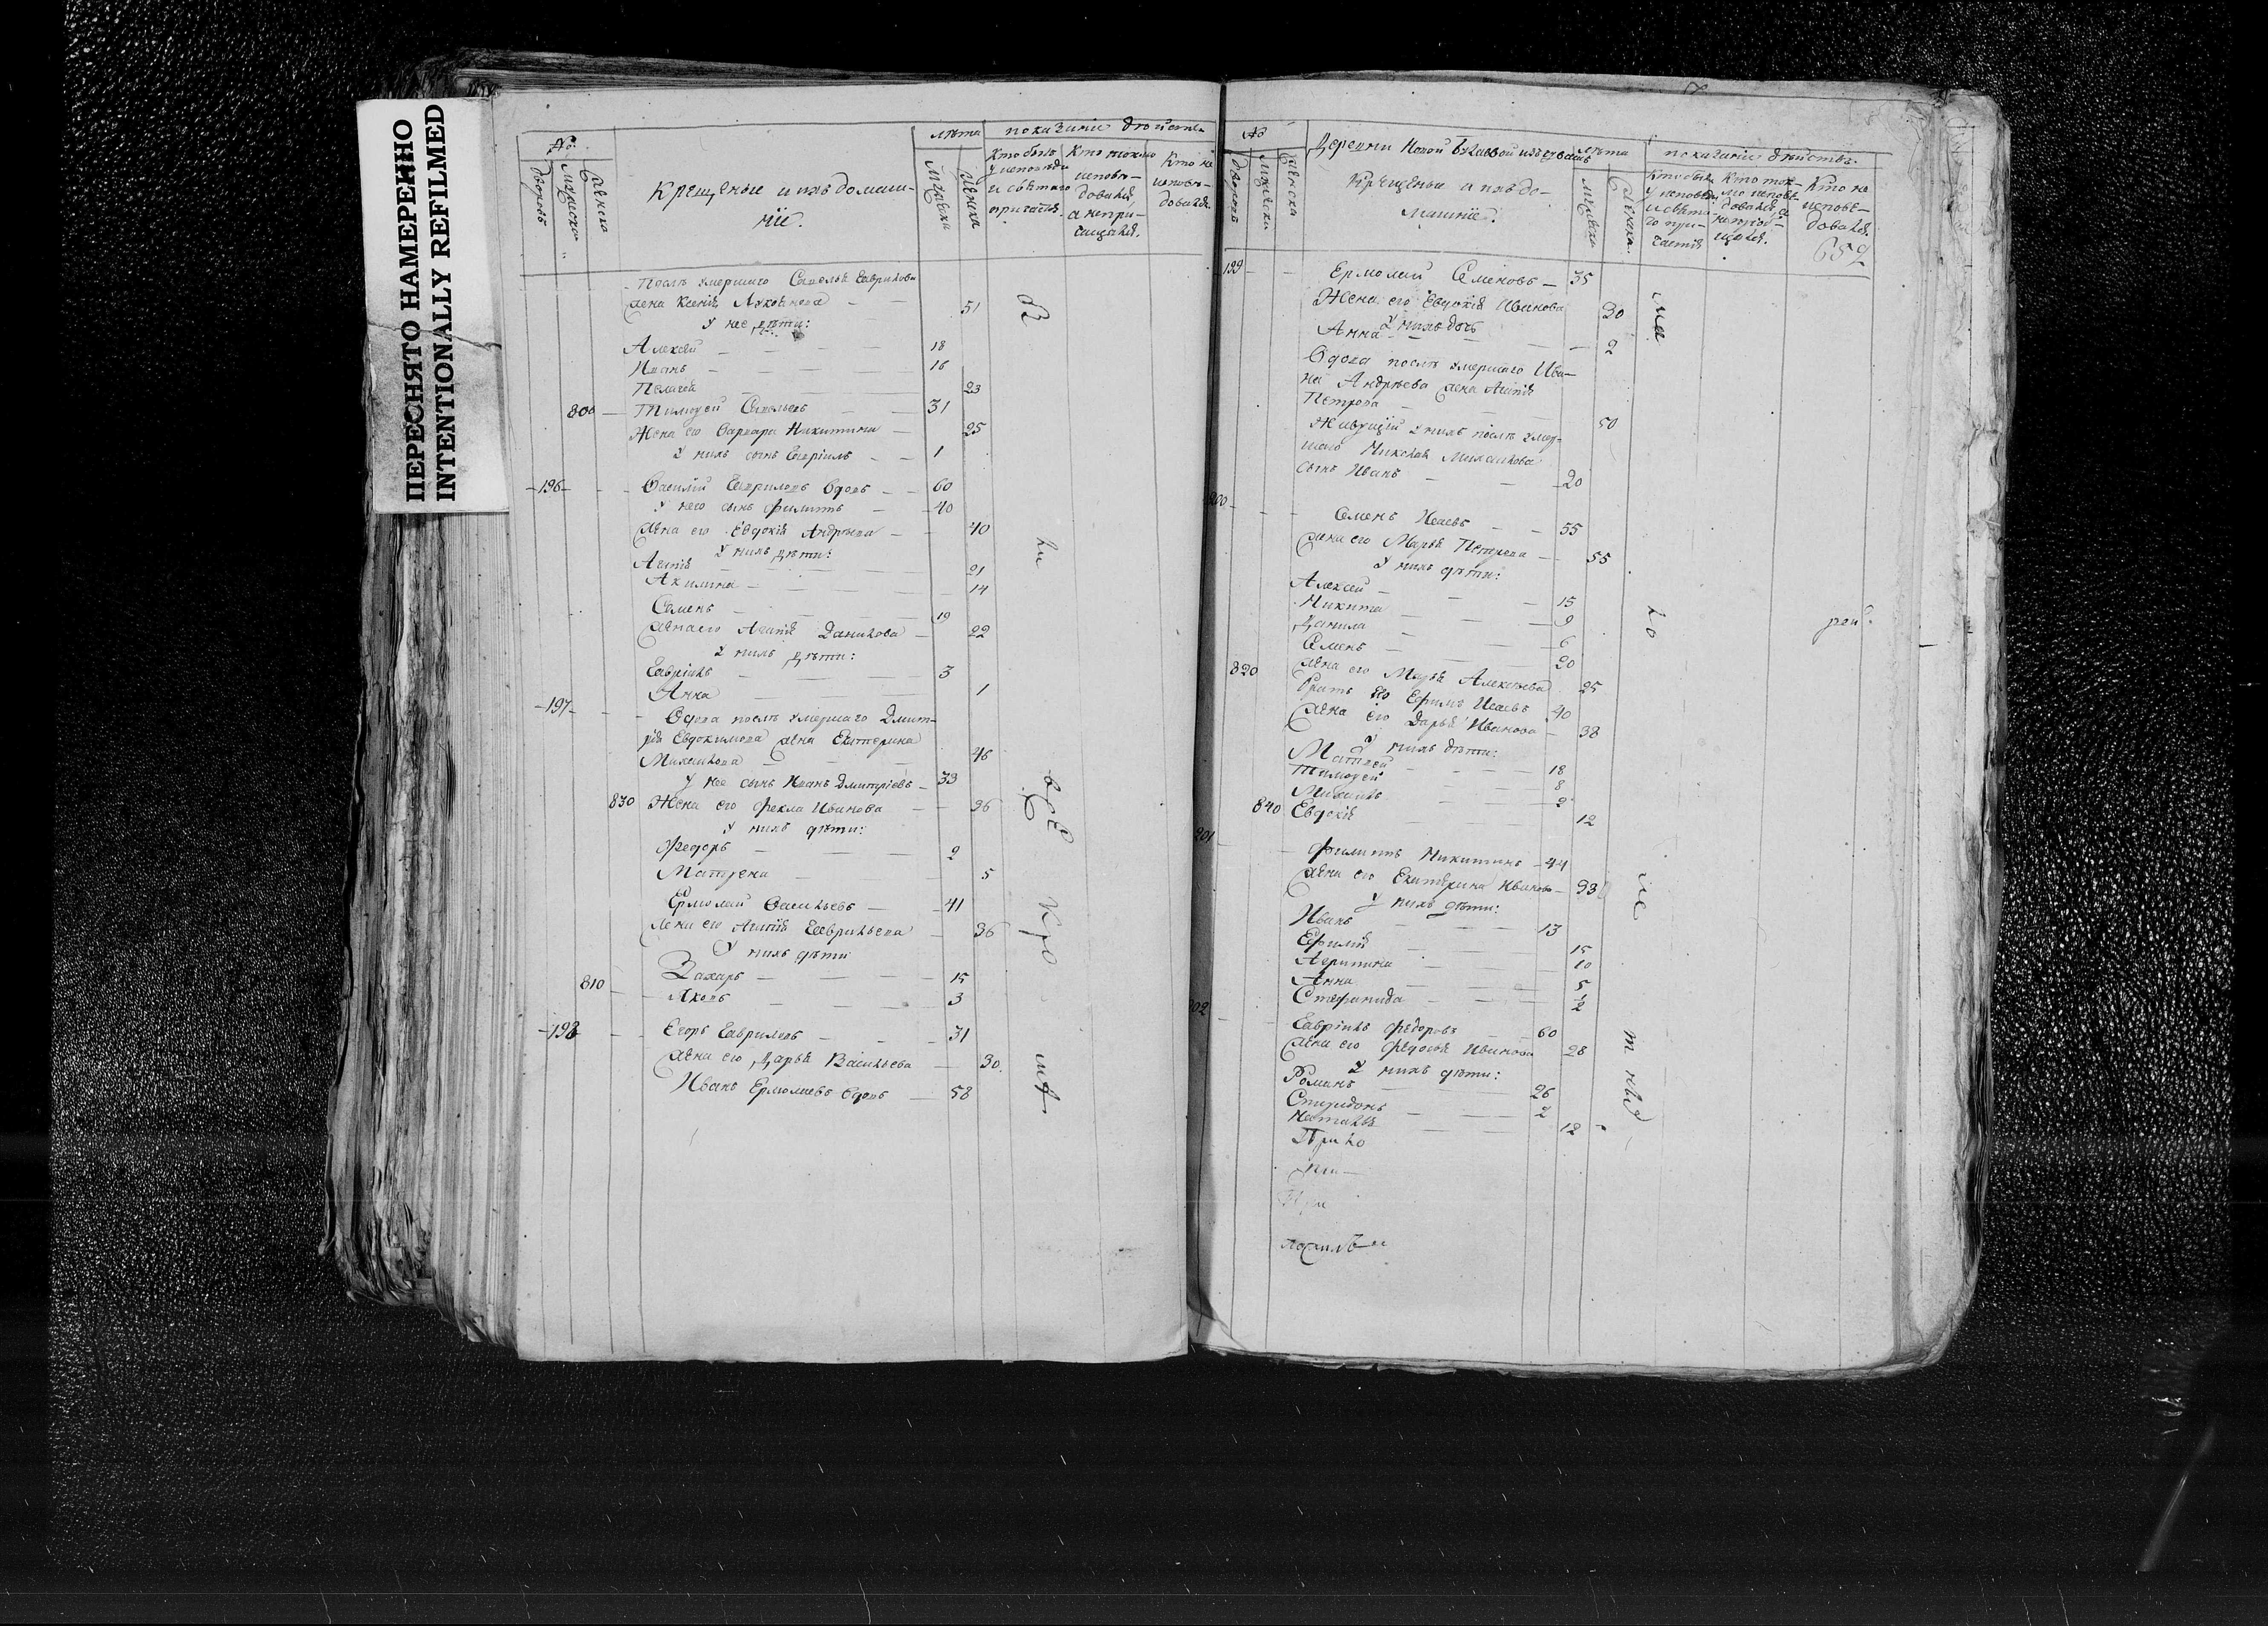 ПЕРЕСНЯТО НАМЕРЕННО
INTENTIONALLY REFILMED
№
лѣта
показанiе дѣйств
дворовъ
мужеска
женска
Крещеные и ихъ домаш-
нiе.
мужска
женска
Кто былъ
у исповѣди
и святаго
причастiя.
Кто токмо
исповѣ-
довался
а непри-
чащался.
Кто не
исповѣ-
довался.
Послѣ умершаго Савелья Гаврилова
жена Ксенiя 51
У нее дѣти:
Алексѣй 18
Иванъ 16
Пелагея 23
800 Тимофей Савельевъ 31
Жена его Варвара Никитина 25
У нихъ сынъ Гаврiилъ 1
196 Василiй Гавриловъ вдовъ 60
У него сынъ Филиппъ 40
жена его Евдокiя Андреева 40
У нихъ дѣти:
Агапiя 21
Акилина 14
Семенъ 19
жена его Агапiя Данилова 22
У нихъ дѣти:
Гаврiилъ 3
Анна 1
197 Вдова послѣ умершаго Дмит-
рiя Евдокимова жена Екатерина
Михайлова 46
У нее сынъ Иванъ Дмитрiевъ 33
830 Жена его Фекла Иванова 26
У нихъ дѣти:
Федоръ 2
Матрена 5
Ермолай Васильевъ 41
жена его Агапiя 36
У нихъ дѣти
Захаръ 15
810 Яковъ 3
198 Егоръ Гавриловъ 31
жена его Дарья Васильева 30
Иванъ Ермолаевъ вдовъ 58
№
Деревни Новой
лѣта
показанiе дѣйствъ.
дворовъ
мужеска
женска
Крещеные и ихъ до-
машнiе.
мужеска
женска
Кто былъ
у исповѣди
и свята-
го при-
частiя
Кто ток-
мо исповѣ-
довался, а
не прiоб-
щался.
Кто не
исповѣ-
довался.
652
199 Ермолай Семеновъ 35
Жена его Евдокiя Иванова 30
У нихъ дочь
Анна 2
Вдова послѣ умершаго Ива-
на Андрѣева жена Агапiя
Петрова 50
Живущiй у нихъ послѣ умер-
шаго Михайлова
сынъ Иванъ 20
200 Семенъ Исаевъ 55
жена его Марья Петрова 55
У нихъ дѣти:
Алексей 15
Никита 9
Данила 6
Семенъ 20
820 жена его Марья Алексѣева 25
Братъ его Ефимъ Исаевъ 40
жена его Дарья Иванова 38
У нихъ дѣти:
Матвей 18
Тимофей 8
Михаилъ 2
840 Евдокiя 12
201 Филиппъ Никитинъ 44
жена его Екатерина Иванова 33
У нихъ дѣти:
Иванъ 13
Ефимiя 15
Агрипина 10
Анна 5
Стефанида 2
202 Гаврiилъ Федоровъ 60
жена его Федосья Иванова 28
У нихъ дѣти:
Романъ 26
Спиридонъ 2
Наталья 12